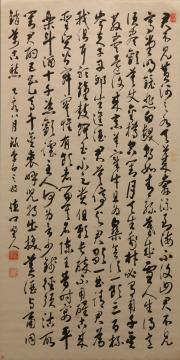 君不見黃河之水天上來奔流到海不復回君不見
高堂明鏡悲白髮朝如青絲暮成雪人生得意
須盡歡莫使金樽空對月天生我材必有用千金
散盡還復來烹羊宰牛且為樂會須一飲三百杯
岑夫子丹丘生進酒君莫停與君歌一曲請君為
我傾耳聽鐘鼓饌玉不足貴但願長醉不願醒古來
聖賢皆寂寞惟有飲者留其名陳王昔時宴平
樂斗酒十千恣歡謔主人何為言少錢徑須沽取
對君酌五花馬千金裘呼兒將出換美酒與爾同
銷萬古愁 八月 李白